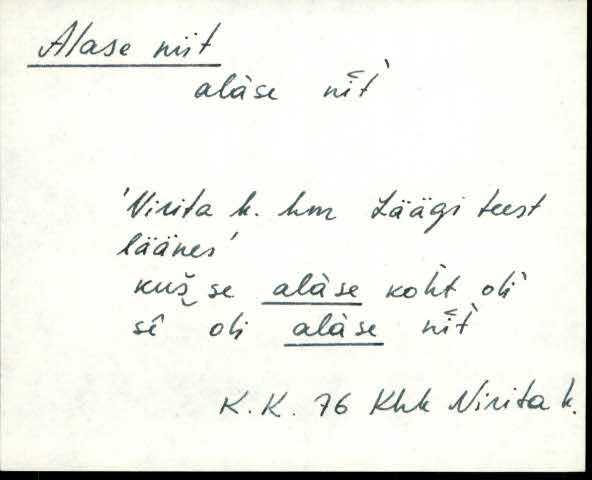 Alase niit
alàse nīt̀
'Nirita k. hm Läägi teest
läänes'
kuš se alàse koht̀ oli
sê oli alàse nīt̀
K.K. 76 Khk Nirita k.